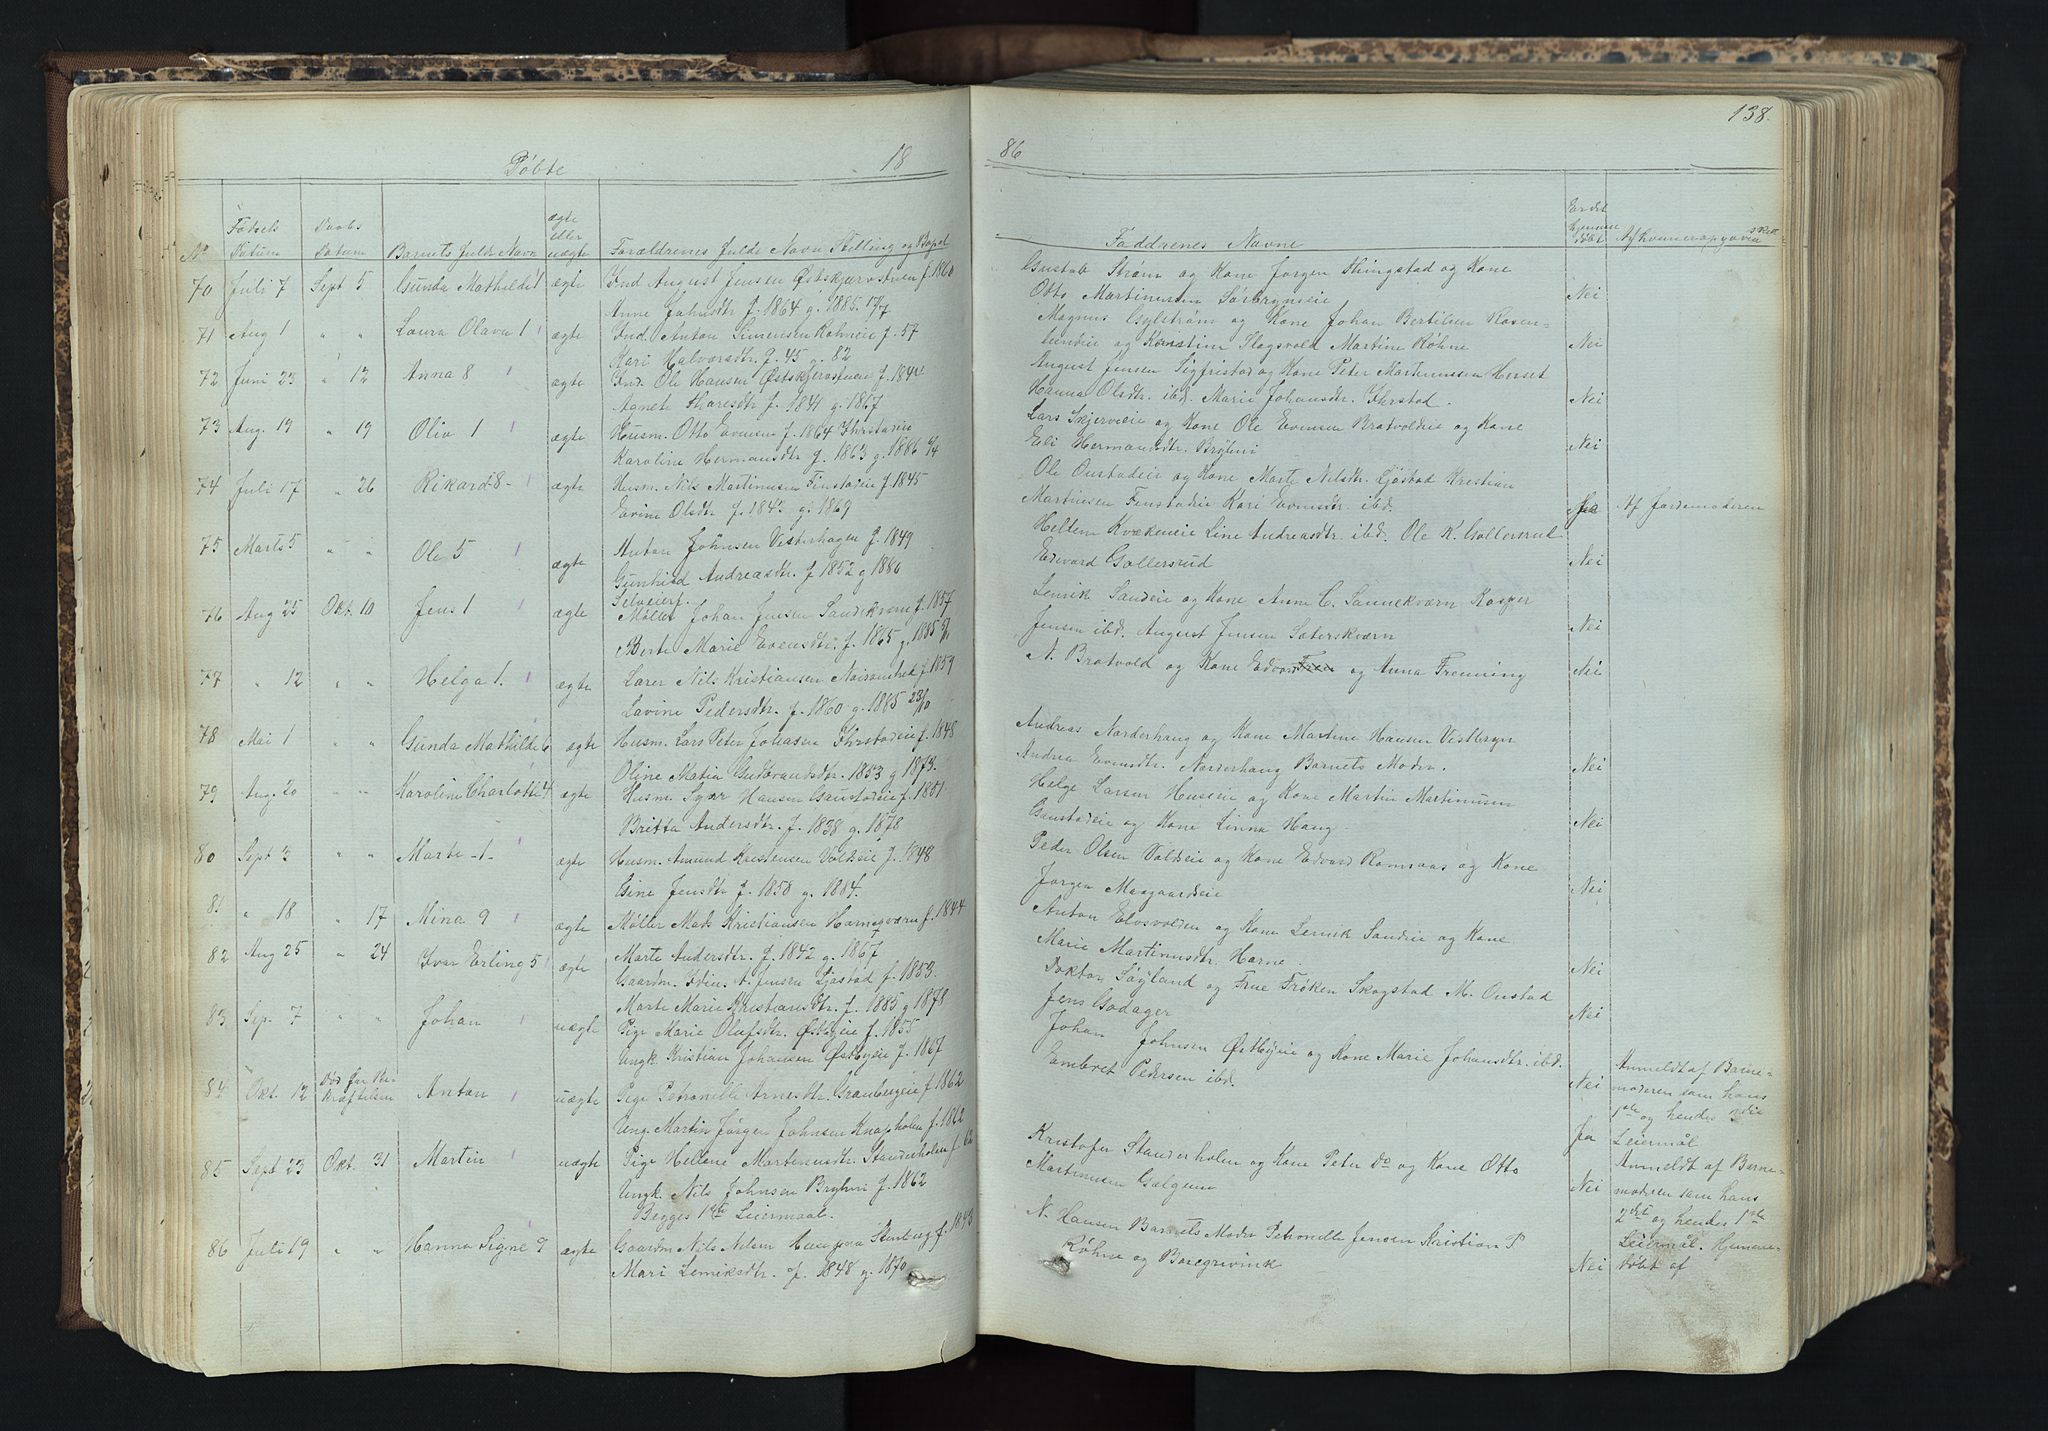 138.
Døbte 18
86
No
Fødsels Datum
Daabs Datum
Barnets fulde Navn
ægte eller uægte
Forældrenes fulde Navn Stilling og Bopæl
Faddrenes Navne
Er det hjemmedøbt
70 Juli 7 Sept 5 Gunda Mathilde 1 ægte Ind August Jensen Østskjærvstuen f. 1860
Anne Johnsdtr f. 1864 g. 1885
Gustab Strøm og Kone Jørgen Thingstad og Kone
Otto Martinusen Sørbrynseie Nei
71 Aug 1 " " Laura Olava 1 ægte Ind. Anton Simensen Kohneie f. 57
Kari Halvorsdtr f. 45 g. 82
Magnus Gylstrøm og Kone Johan Bertilsen Rosen-
lundeie og Kirstine Slagsvold Martine Køhne Nei
72 Juni 23 " 12 Anna 8 ægte Ind. Ole Hansen Østskjervstuen f. 1844
Agnete Tharesdtr f. 1841 g. 1867
August Jensen Sigfristad og Kone Peter Martinusen Herset
Hanna Olsdtr. ibd. Marie Johansdtr. Ihrstad. Nei
73 Aug. 19 " 19 Oliv 1 ægte Husm. Otto Evensen f. 1864 Ihrstadeie
Karoline Hermansdtr f. 1863 g. 1886
Lars Skjerveie og Kone Ole Evensen Bratvoldeie og Kone
Eli Hermansdtr. Bryhni Nei
74 Juli 17 " 26 Rikard 8 ægte Husm. Nils Martinusen Finstadeie f 1845
Evine Olsdtr f. 184 g. 1869
Ole Onstadeie og Kone Marte Nilsdtr. Ljøstad Kristian
Martinsen Finstadeie Kari Evensdtr ibd. Ja Af Jordemoderen
75 Marts 5 " " Ole 5 ægte Anton Johnsen Vesterhagen f. 1849
Gunhild Andreasdtr. f 1852 g 1880
Heltem Kvækeneie Line Andreasdtr ibd. Ole K. Gollersrud
Edevard Gollersrud Nei
76 Aug 25 Okt. 10 Jens 1 ægte Selveierf.
Møller Johan Jensen Sandekværn f. 1857
Berte Marie Evensdtr. f. 1865 g. 1885
Lenrik Sandeie og Kone Anne C. Sannekværn Kasper
Jensen ibd. August Jensen Sæterskværn Nei
77 " 12 " " Helga 1. ægte Larer Nils Kristiansen f. 1859
Lavine Pedersdtr. f. 1860 g. 1885 23/10
N. Bratvold og Kone Edvard og Anna Frenning Nei
78 Mai 1 " " Gunda Mathilde 6 ægte Husm. Lars Peter Johansen Ihrstadeie f. 1848
Oline Matia Gudbrandsdtr. 1853 g 1873.
Andreas Norderhaug og Kone Martine Hansen Vestbryn
Andrea Evensdtr. Norderhaug Barnets Moder. Nei
79 Aug. 20 " " Karoline Charlotte 4 ægte Husm. Syver Hansen Gaustadeie f. 1851
Britta Andersdtr. f. 1838 g. 1878
Helge Larsen Huseeie og Kone Martin Martinusen
Gaustadeie og Kone Linna Haug Nei
80 Sept 3 " " Marte 1 ægte Husm. Amund Kristensen Voldeie f. 1848
Gine Jensdtr f. 1858 g. 1884.
Peder Olsen Voldeie og Kone Edvard Ramsaas og Kone
Jørgen Maagaardeie Nei
81 " 18 " 17 Mina 9 ægte Møller Mads Kristiansen Harnesværn f. 1844
Marte Andersdtr. f. 1842 g. 1867
Anton Elvsvolden og Kone Lenrik Sandeie og Kone
Marie Martinusdtr. Harne. Nei
82 Aug 25 " 24 Ivar Erling 5 ægte Gaardm. Iden. A. Jensen Ljøstad f. 1853.
Marte Marie Kristiansdtr. f. 1885 g 1878
Doktor Søyland og Frue Frøken Skogstad M. Onstad
Jens Godager Nei
83 Sep. 7 " " Johan uægte Pige Marie Olufsdtr. Østbyeie f. 1855
Ungk Kristian Johansen Østbyeie f. 1867
Johan Johnsen Østbyeie og Kone Marie Johansdtr. ibd.
Embret Pedersen ibd. Nei
Anmeldt af Barne-
moderen som hans
1ste og hendes 3die
Leiermål
84 Okt. 12 Død før Be-
kræftelsen Anton uægte Pige Petronelle Arnesdtr. Granbergeie f 1862
Ung. Martin Jørgen Johnsen Knapholen f. 1862
ja
85 Sept 23 Okt. 31 Martin uægte Pige Hellene Martinusdtr. Standerholen f 62
Ungk. Nils Johnsen Bryhni f. 1862
Begges 1ste Leiermaal.
Kristofer Standerholen og Kone Peter do og Kone Otto
Martinusen Gælgenn Nei
Anmeldt af Barne-
moderen som hans
2det og hendes 1ste
Leiermål. Hjemme-
døbt af
86 Juli 19 " " Hanna Signe 9 ægte Gaardm Nils Nilsen Stenberg f. 1843
Mari Lemiksdtr. f. 1848 g. 1870
N. Hansen Barnets Moder Petronelle Jensen Kristian P
Køhne og Borgrivink Nei